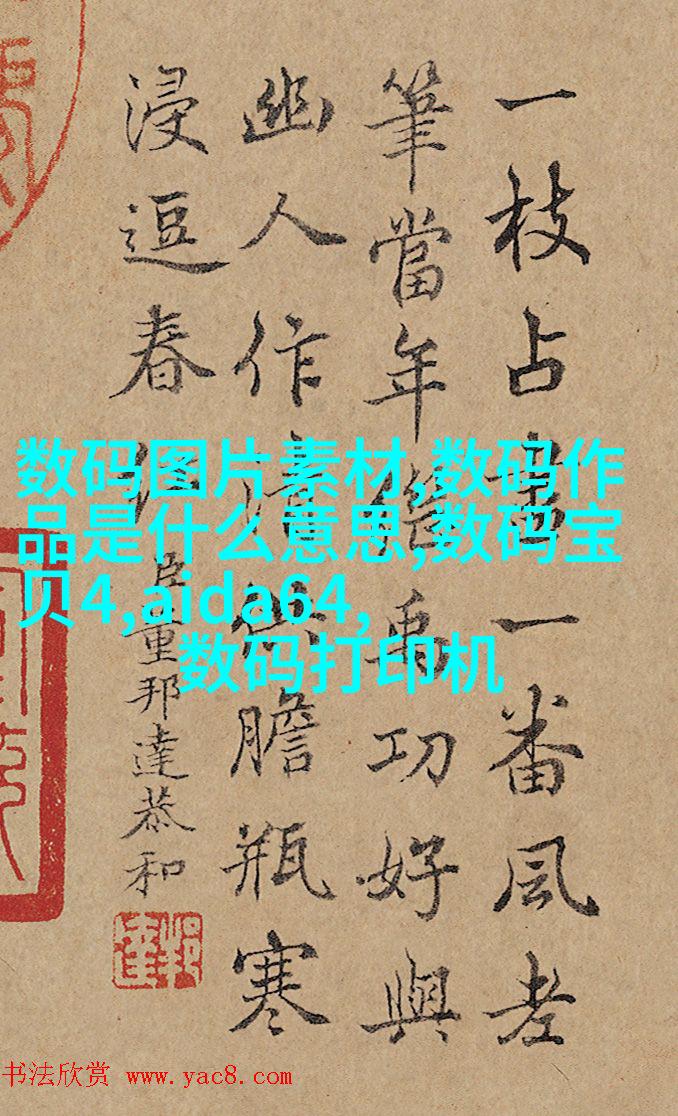 一枝占一番風老
筆當年禹功好與
幽人作清供膽瓶寒
浸逗春紅
臣董邦達恭和
数码图片素材,数码作
品是什么意思,数码宝
贝4,aida64,
数码打印机
书法欣赏 www.yac8.com